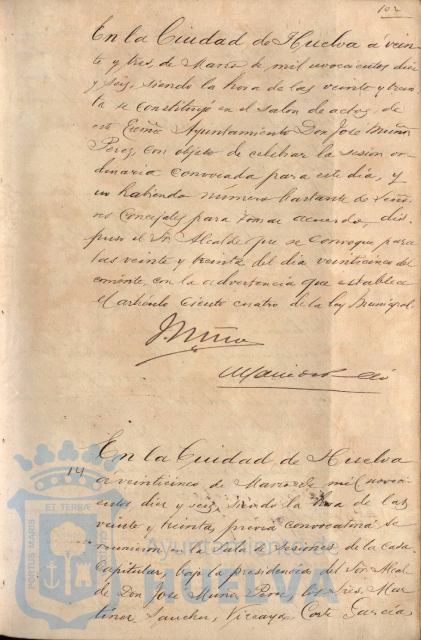 102
En la Ciudad de Huelva á vein
te y tres de Marzo de mil novecientos diez
y seis, siendo la hora de las veinte y trein
ta se constituyó en el salon de actos de
este Excmo Ayuntamiento Don José Muñoz
Perez, con objeto de celebrar la sesion or
dinaria convocada para este dia, y
no habiendo número bastante de Seño
res Concejales para tomar acuerdo, dis
puso el Sr. Alcalde que se convoque para
las veinte y treinta del dia veinticinco del
corriente, con la advertencia que establece
el artículo ciento cuatro de la ley Municipal.
J. Muñoz
14
En la Ciudad de Huelva
á veinticinco de Marzo de mil nove
cientos diez y seis, siendo la hora de las
veinte y treinta, previa convocatoria se
reunieron en la Sala de Sesiones de la Casa
Capitular, bajo la presidencia del Sr. Alcal
de Don José Muñoz Perez, los Sres. Mar
tinez Sanchez, Vizcaya, Corte Garcia,
PORTUS MARIS ET TERRAE
Ayuntamiento de
HUELVA